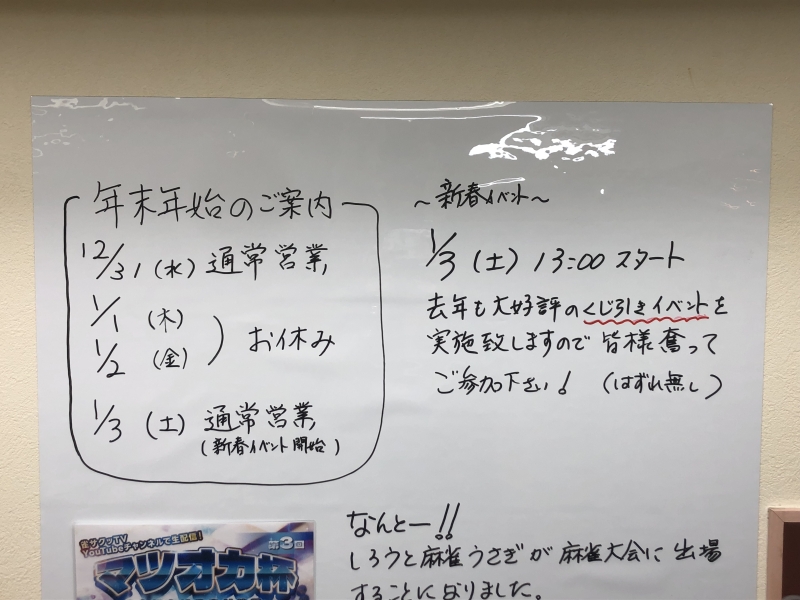 年末年始のご案内
12/31(水) 通常営業
1/1 (木)
1/2 (金)
) お休み
1/3 (土) 通常営業
(新春イベント開始)
〜新春イベント〜
1/3 (土) 13:00 スタート
去年も大好評のくじ引きイベントを
実施致しますので 皆様奮って
ご参加下さい! (はずれ無し)
なんとー!!
しろうと麻雀うさぎが麻雀大会に出場
することになりました。
雀サクッTV
YouTubeチャンネルで生配信!
第3回
マツオカ杯